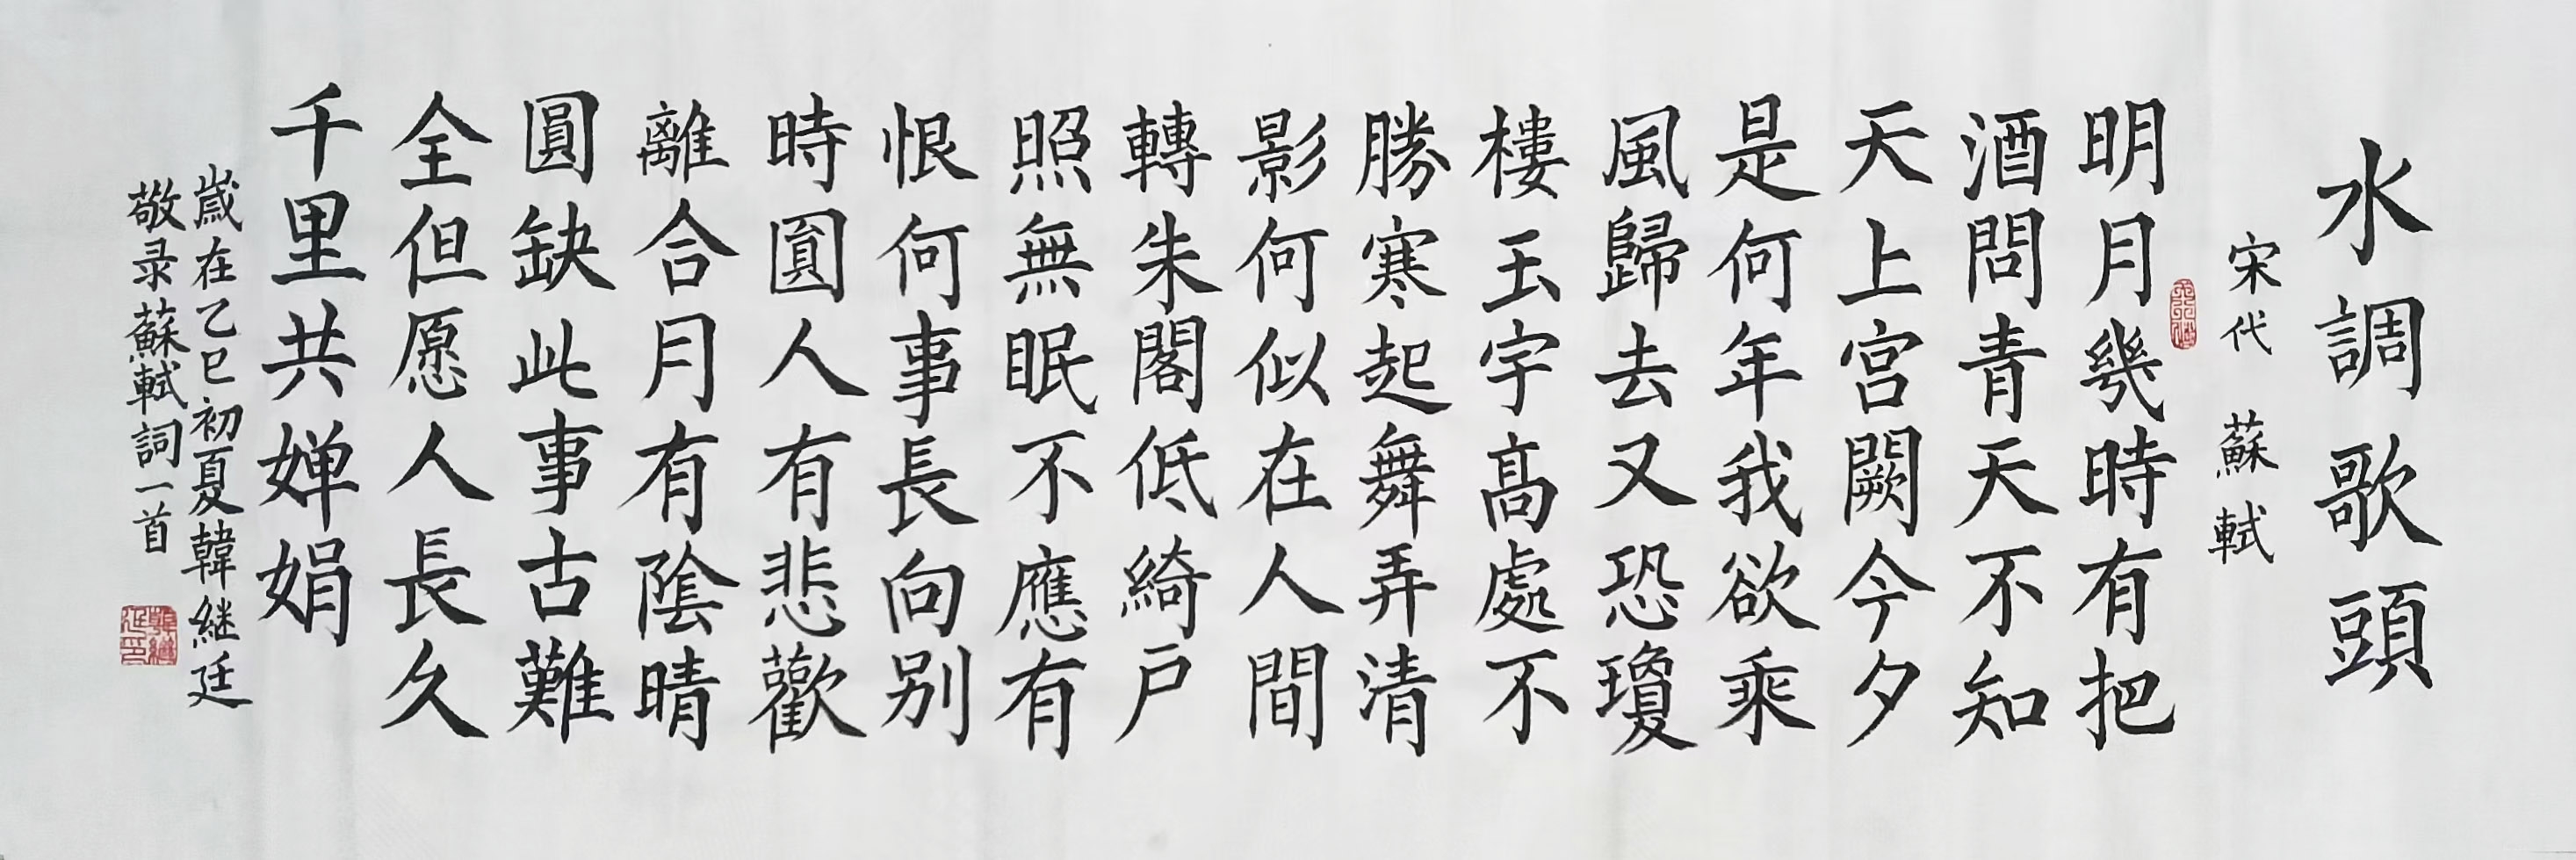 水調歌頭
宋代 蘇軾
明月幾時有把
酒問青天不知
天上宫闕今夕
是何年我欲乘
風歸去又恐瓊
樓玉宇高處不
勝寒起舞弄清
影何似在人間
轉朱閣低綺户
照無眠不應有
恨何事長向别
時圓人有悲歡
離合月有陰晴
圓缺此事古難
全但愿人長久
千里共婵娟
歲在乙巳初夏韓继廷
敬录蘇軾詞一首